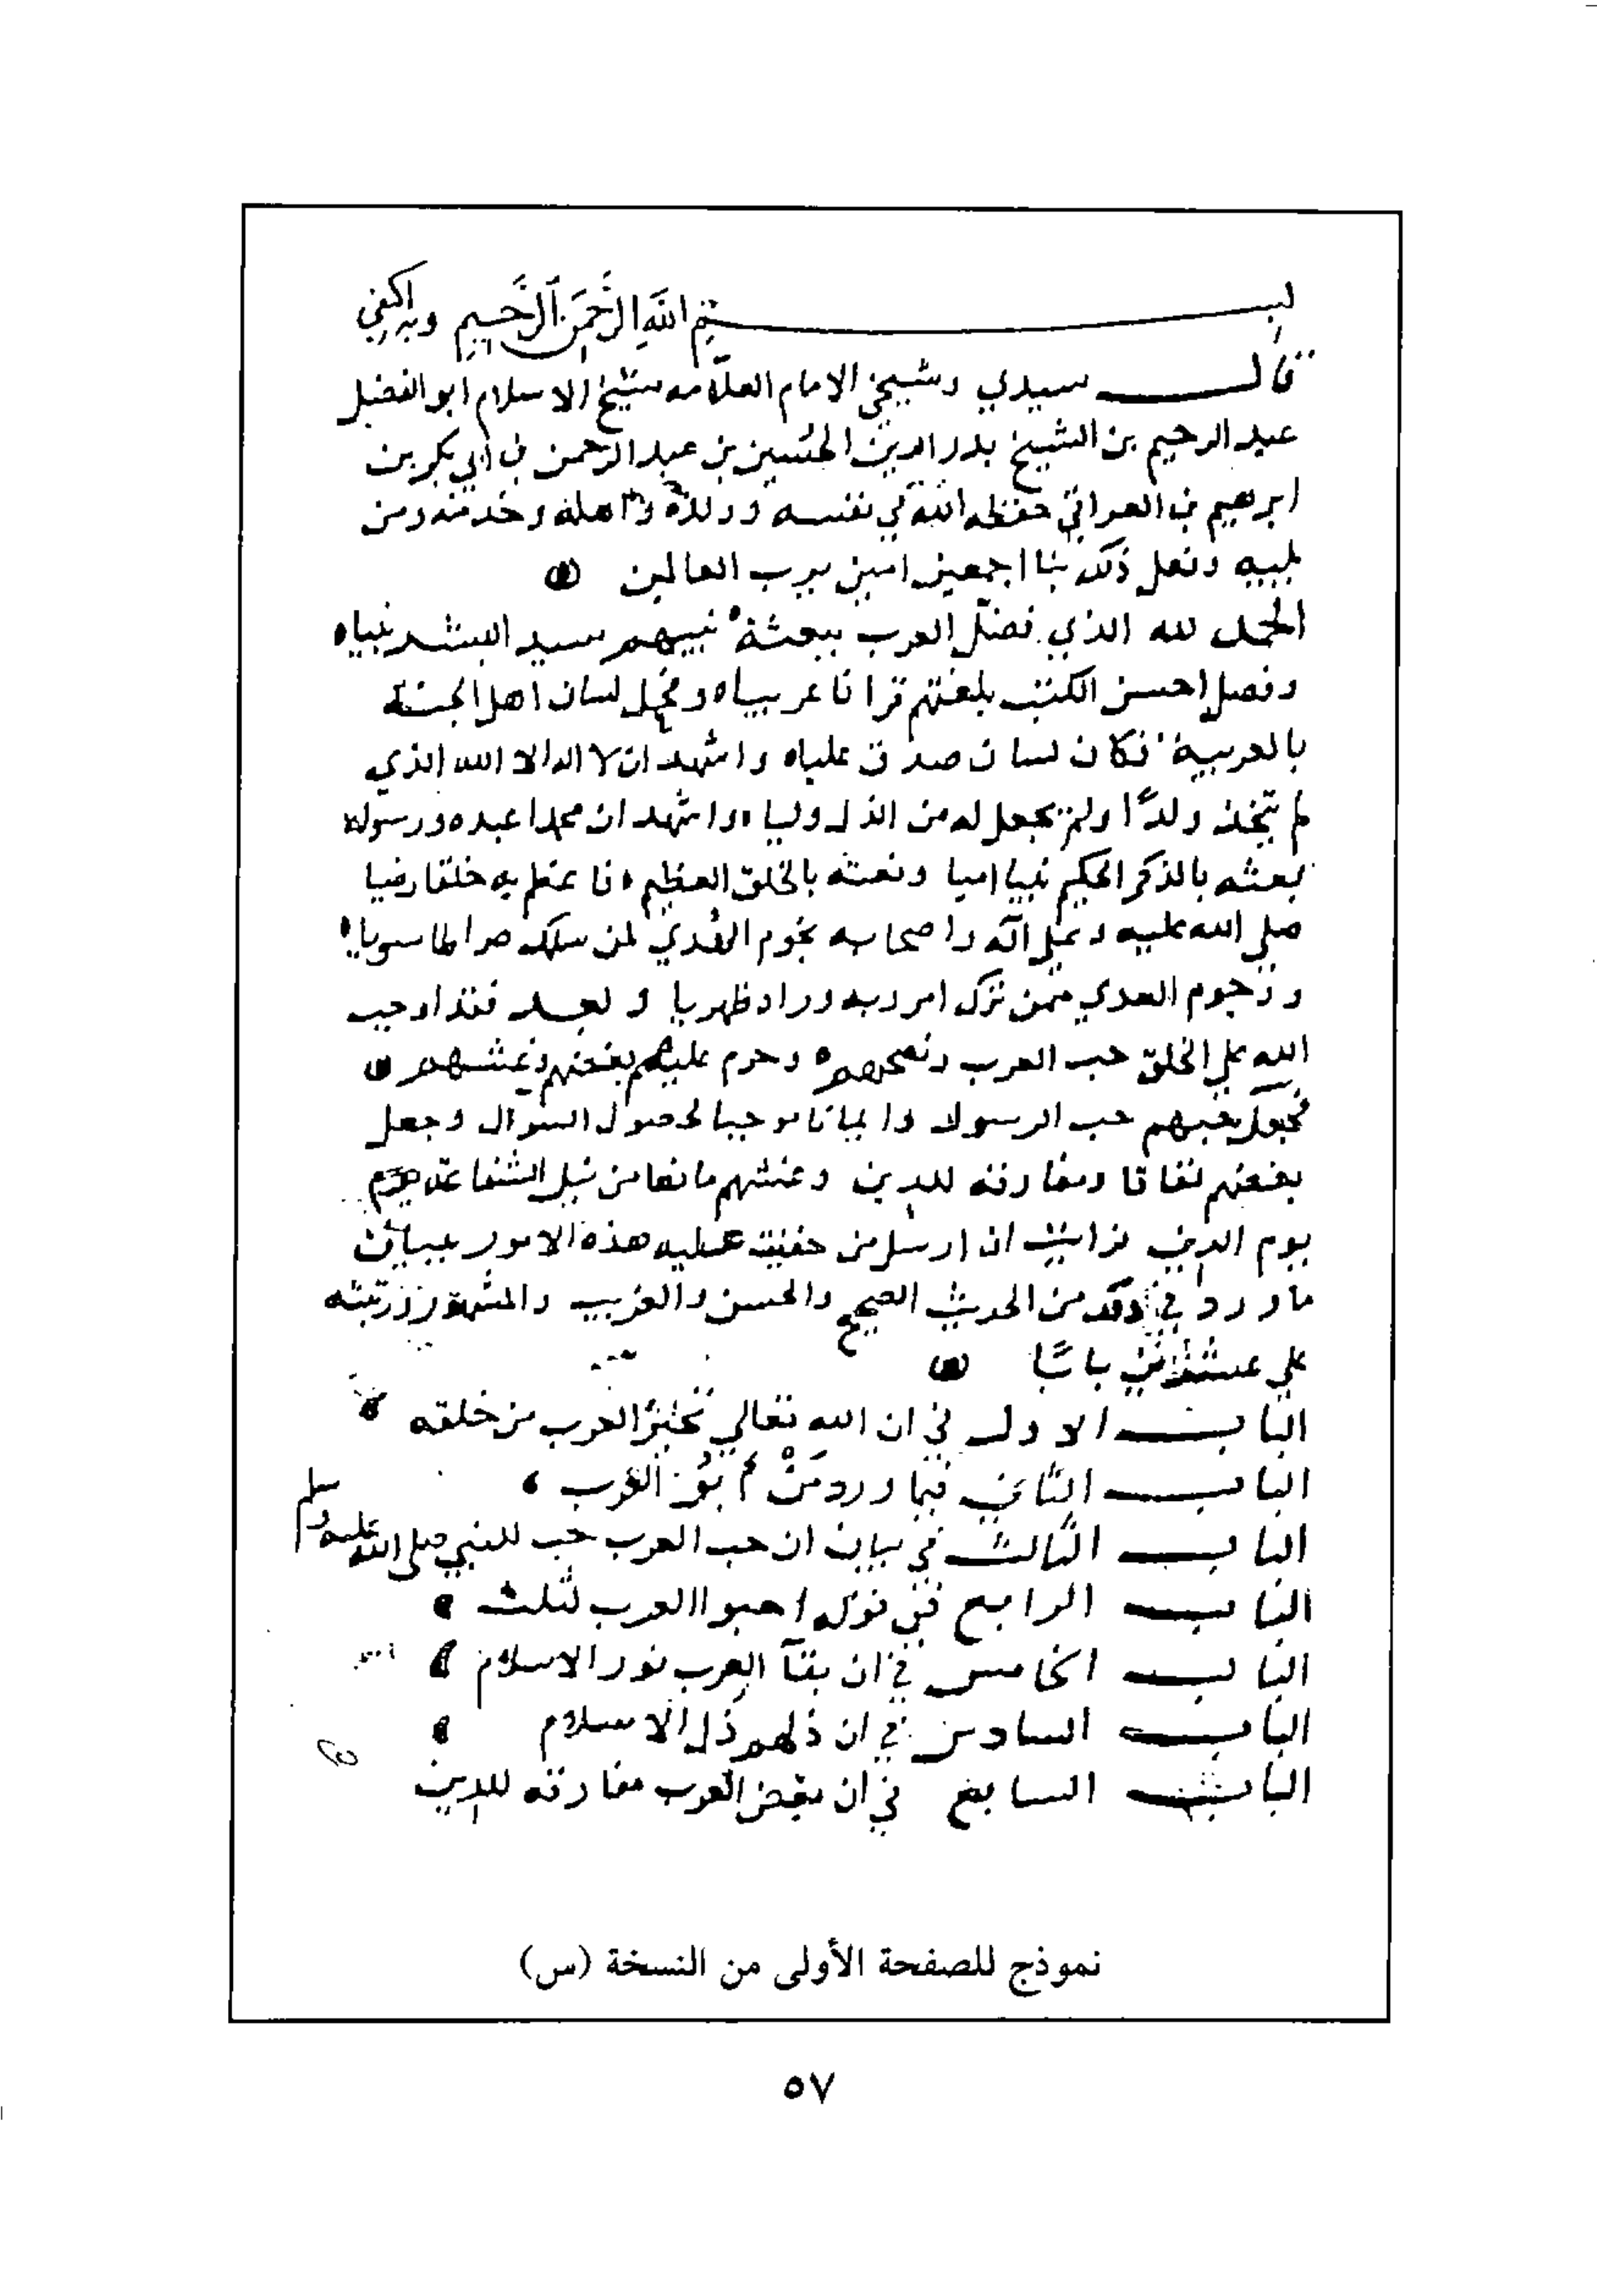 بسم الله الرحمن الرحيم وبه اكتفي
قال سيدي وشيخي الامام العلامه شيخ الاسلام ابو الفضل
عبد الرحيم بن الشيخ بدر الدين الحسين بن عبد الرحمن بن ابي بكر بن
ابرهيم بن العراقي حفظه الله في نفسه وولده واهله وخدمته ومن
يليه وفعل ذلك بنا اجمعين امين يرب العالمين
الحمد لله الذي فضل العرب ببعثة نبيهم سيد البشر نبيا
وفصل احسن الكتب بلغتهم قرانا عربيا وجعل لسان اهل الجنة
بالعربية فكان لسان صدق عليا واشهد ان لا اله الا الله الذي
لم يتخذ ولدًا ولم يجعل له من الذل وليا واشهد ان محمدا عبده ورسوله
بعثه بالذكر الحكيم نبيا اميا ونعته بالخلق العظيم فاعظم به خلقا رضيا
صلي الله عليه وعلي آله واصحابه نجوم الهدي لمن سلك صراطا سويا
ورجوم العدي ممن ترك امر ربه وراه ظهريا وبعد فقد اوجب
الله علي الخلق حب العرب ونصحهم وحرم عليهم بغضهم وغشهم
فجعل حبهم حب الرسول وايمانا موجبا لحصول السوال وجعل
بغضهم نفاقا ومفارقه للدين وغشهم مانعا من نيل الشفاعة
يوم الدين فرايت ان ارسل من خفيت عليه هذه الامور ببيان
ما ورد في ذلك من الحديث الصحيح والحسن والغريب والمشهور ورتبته
علي عشرين بابًا
الباب الاول في ان الله تعالي تخير العرب من خلقه
الباب الثاني فيما ورد من العرب
الباب الثالث في بيان ان حب العرب حب للنبي صلى الله عليه وسلم
الباب الرابع في قوله احبوا العرب لثلث
الباب الخامس في ان بقآ العرب نور الاسلام
الباب السادس في ان ذلهم ذل الاسلام
الباب السابع في ان بغض العرب مفارقه للدين
نموذج للصفحة الأولى من النسخة (س)
٥٧